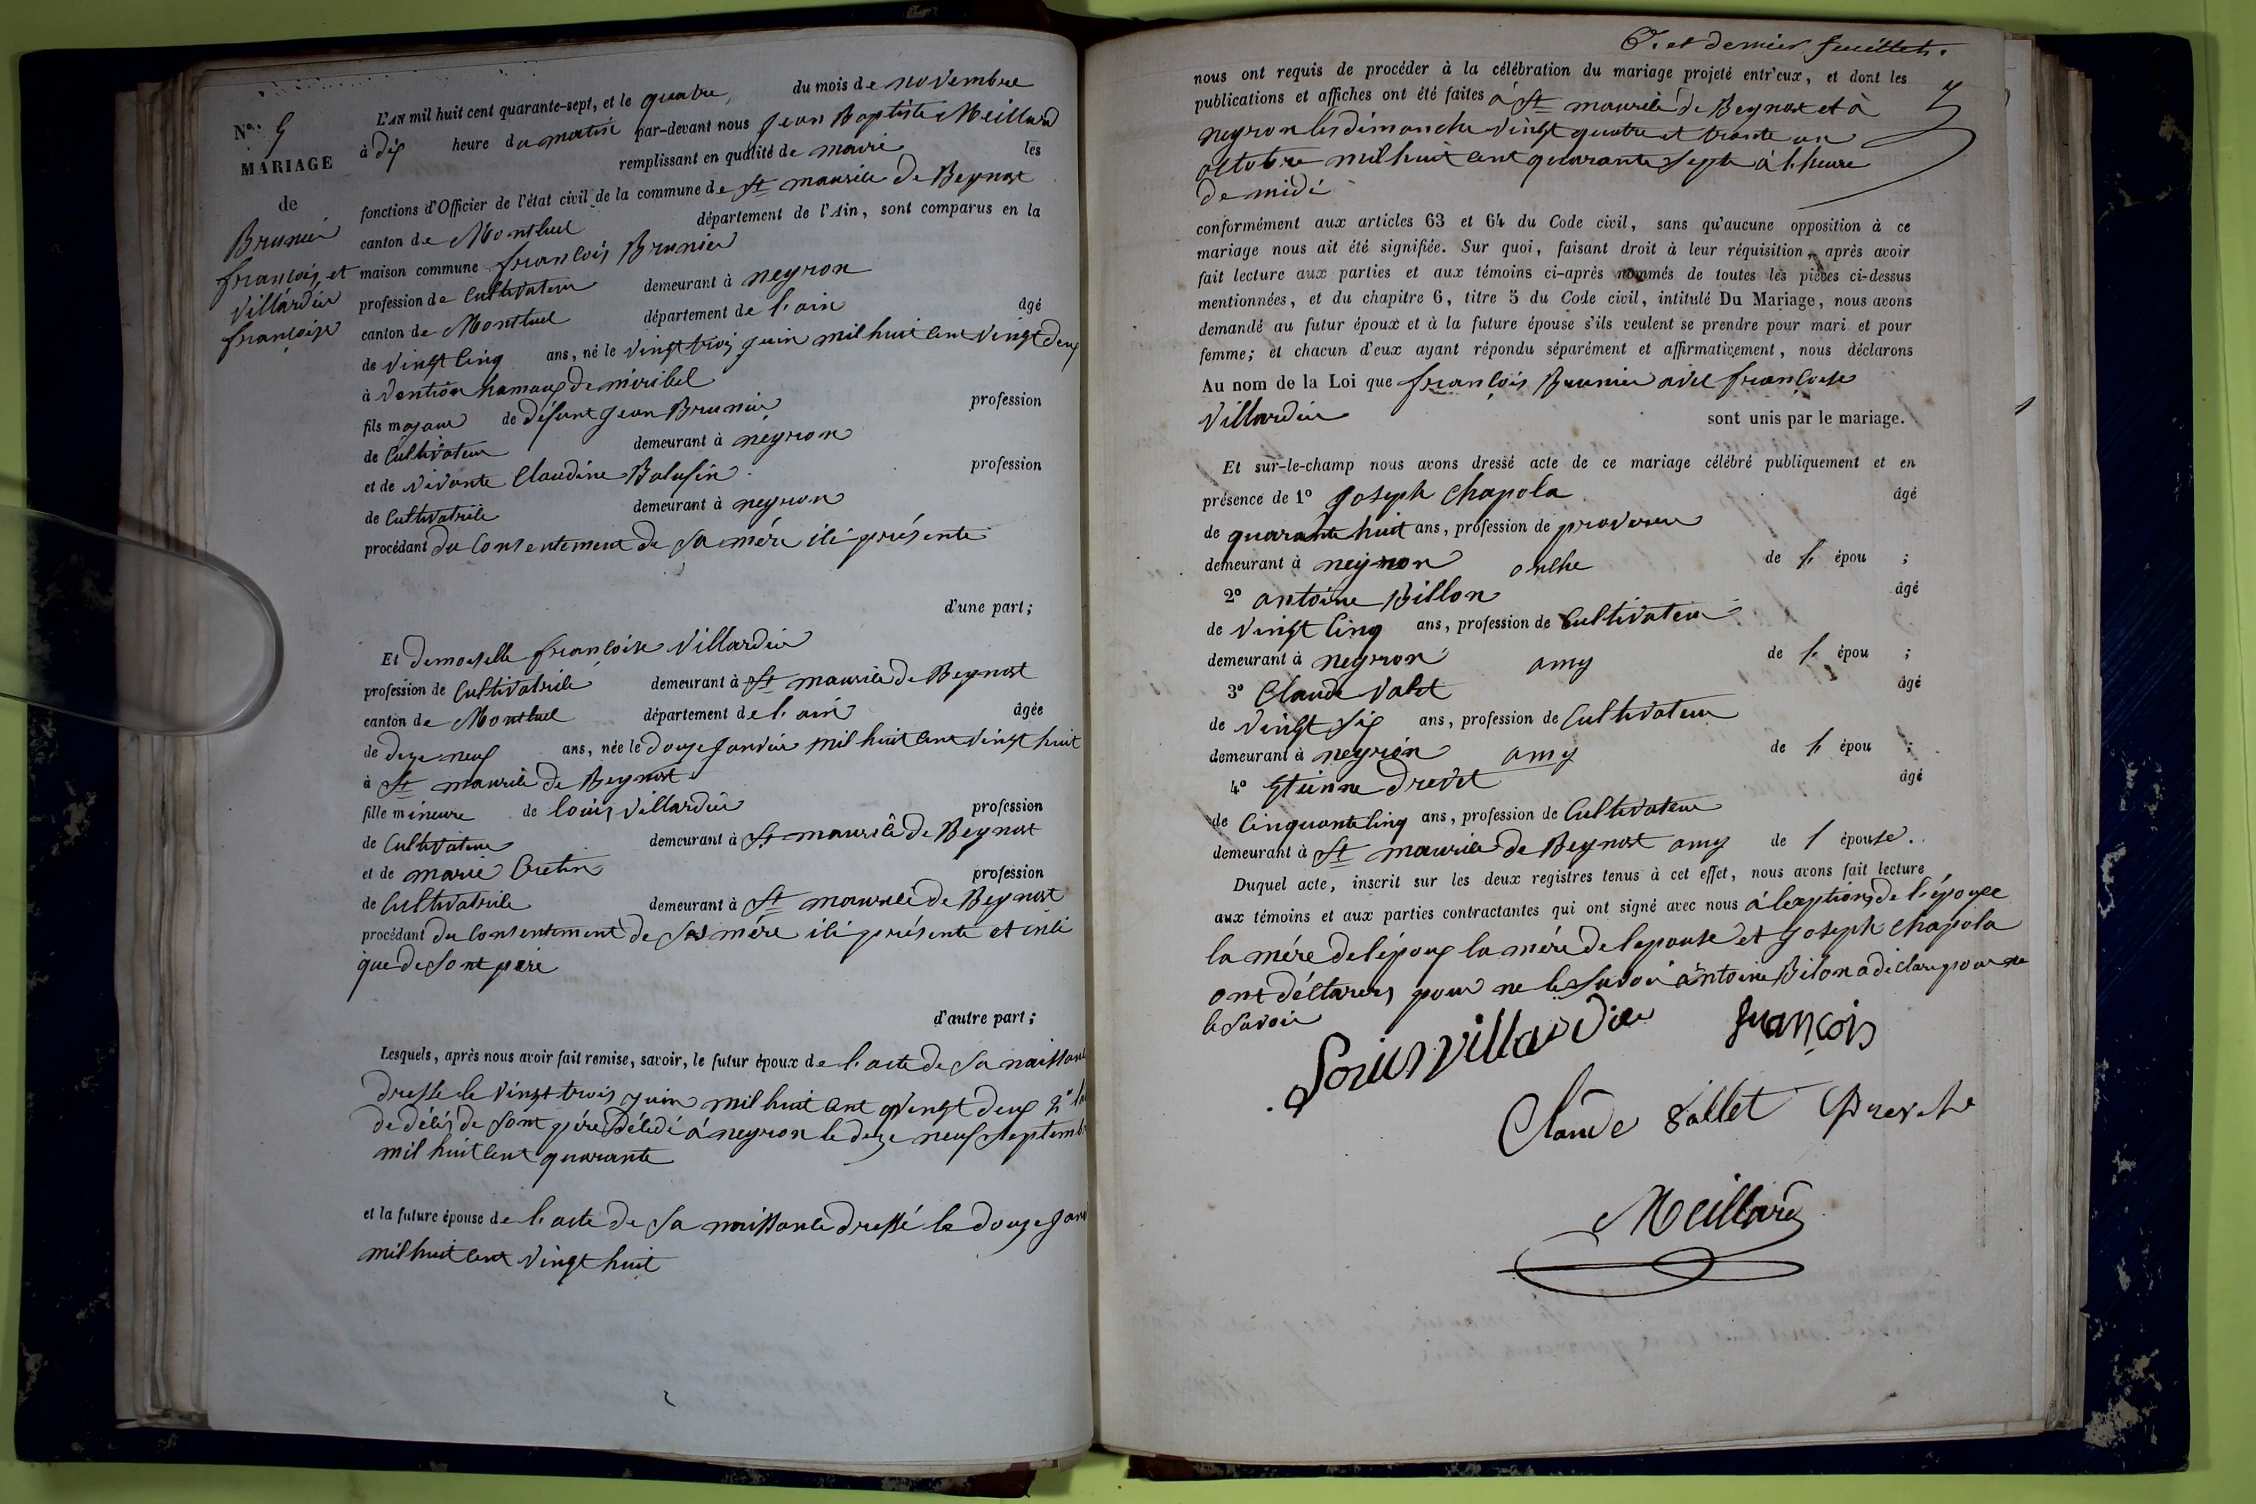 L'AN mil huit cent quarante-sept, et le quatre du mois de novembre
à dix heure du matin par-devant nous Jean Baptiste Meillard
remplissant en qualité de maire les
fonctions d'Officier de l'état civil de la commune de St maurice de Beynost
canton de Montluel département de l'Ain, sont comparus en la
maison commune françois Brunier
profession de Cultivateur demeurant à neyron
canton de Montluel département de l'ain âgé
de vingt cinq ans, né le vingt trois juin mil huit cent vingt deux
à hamaux de miribel
fils majeur de défunt Jean Brunier profession
de Cultivateur demeurant à neyron
et de vivante Claudine profession
de Cultivatrice demeurant à neyron
procédant du consentement de sa mère ici présente
d'une part;
N°. 5
MARIAGE
de
Brunier
françois et
villardier
françoise
Et demoiselle françoise villardier
profession de Cultivatrice demeurant à St maurice de Beynost
canton de Montluel département de l'ain âgée
de dixe neuf ans, née le douze janvier mil huit cent vingt huit
à St maurice de Beynost
fille mineure de louis villardier profession
de Cultivateur demeurant à St maurice de Beynost
et de marie Cretin profession
de Cultivatrice demeurant à St maurice de Beynost
procédant du consentement de sa mère ici présente et
que de sont père
d'autre part;
Lesquels, après nous avoir fait remise, savoir, le futur époux de l'acte de sa naissance
dressé le vingt trois juin mil huit cent vingt deux 2°
de décès de sont père décédé à neyron le dixe neuf septembre
mil huit cent quarante
et la future épouse de l'acte de sa naissance dressé le douze
mil huit cent vingt huit
6e. et dernier feuillet.
nous ont requis de procéder à la célébration du mariage projeté entr'eux, et dont les
publications et affiches ont été faites à St maurice de Beynost et à
neyron les dimanche vingt quatre et trante un
octobre mil huit cent quarante sept à l'heure
de midi
conformément aux articles 63 et 64 du Code civil, sans qu'aucune opposition à ce
mariage nous ait été signifiée. Sur quoi, faisant droit à leur réquisition, après avoir
fait lecture aux parties et aux témoins ci-après nommés de toutes les pièces ci-dessus
mentionnées, et du chapitre 6, titre 5 du Code civil, intitulé Du Mariage, nous avons
demandé au futur époux et à la future épouse s'ils veulent se prendre pour mari et pour
femme; et chacun d'eux ayant répondu séparément et affirmativement, nous déclarons
Au nom de la Loi que françois Brunier avec françoise
villardier sont unis par le mariage.
Et sur-le-champ nous avons dressé acte de ce mariage célébré publiquement et en
présence de 1° Joseph Chapola âgé
de quarante huit ans, profession de
demeurant à neyron oncle de l' épou ;
2° antoine Billon âgé
de vingt cinq ans, profession de Cultivateur
demeurant à neyron amy de l' épou ;
3° Claude valet âgé
de vingt six ans, profession de Cultivateur
demeurant à neyrion amy de l' épou ;
4° Etienne drevet âgé
de Cinquante cinq ans, profession de Cultivateur
demeurant à St maurice de Beynost amy de l épouse.
Duquel acte, inscrit sur les deux registres tenus à cet effet, nous avons fait lecture
aux témoins et aux parties contractantes qui ont signé avec nous à lexption de l'épouse
la mère de l'époux la mère de lepouse et Joseph Chapola
ont déclarers pour ne le savoir antoine Bilon a declare pour ne
le savoir
Louis villardier françois
Claude vallet Drevet
Meillard